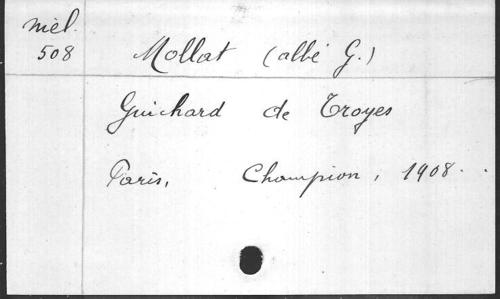 Mél.
508
Mollat (abbé G.)
Guichard de Troyes
Paris, Champion, 1908.